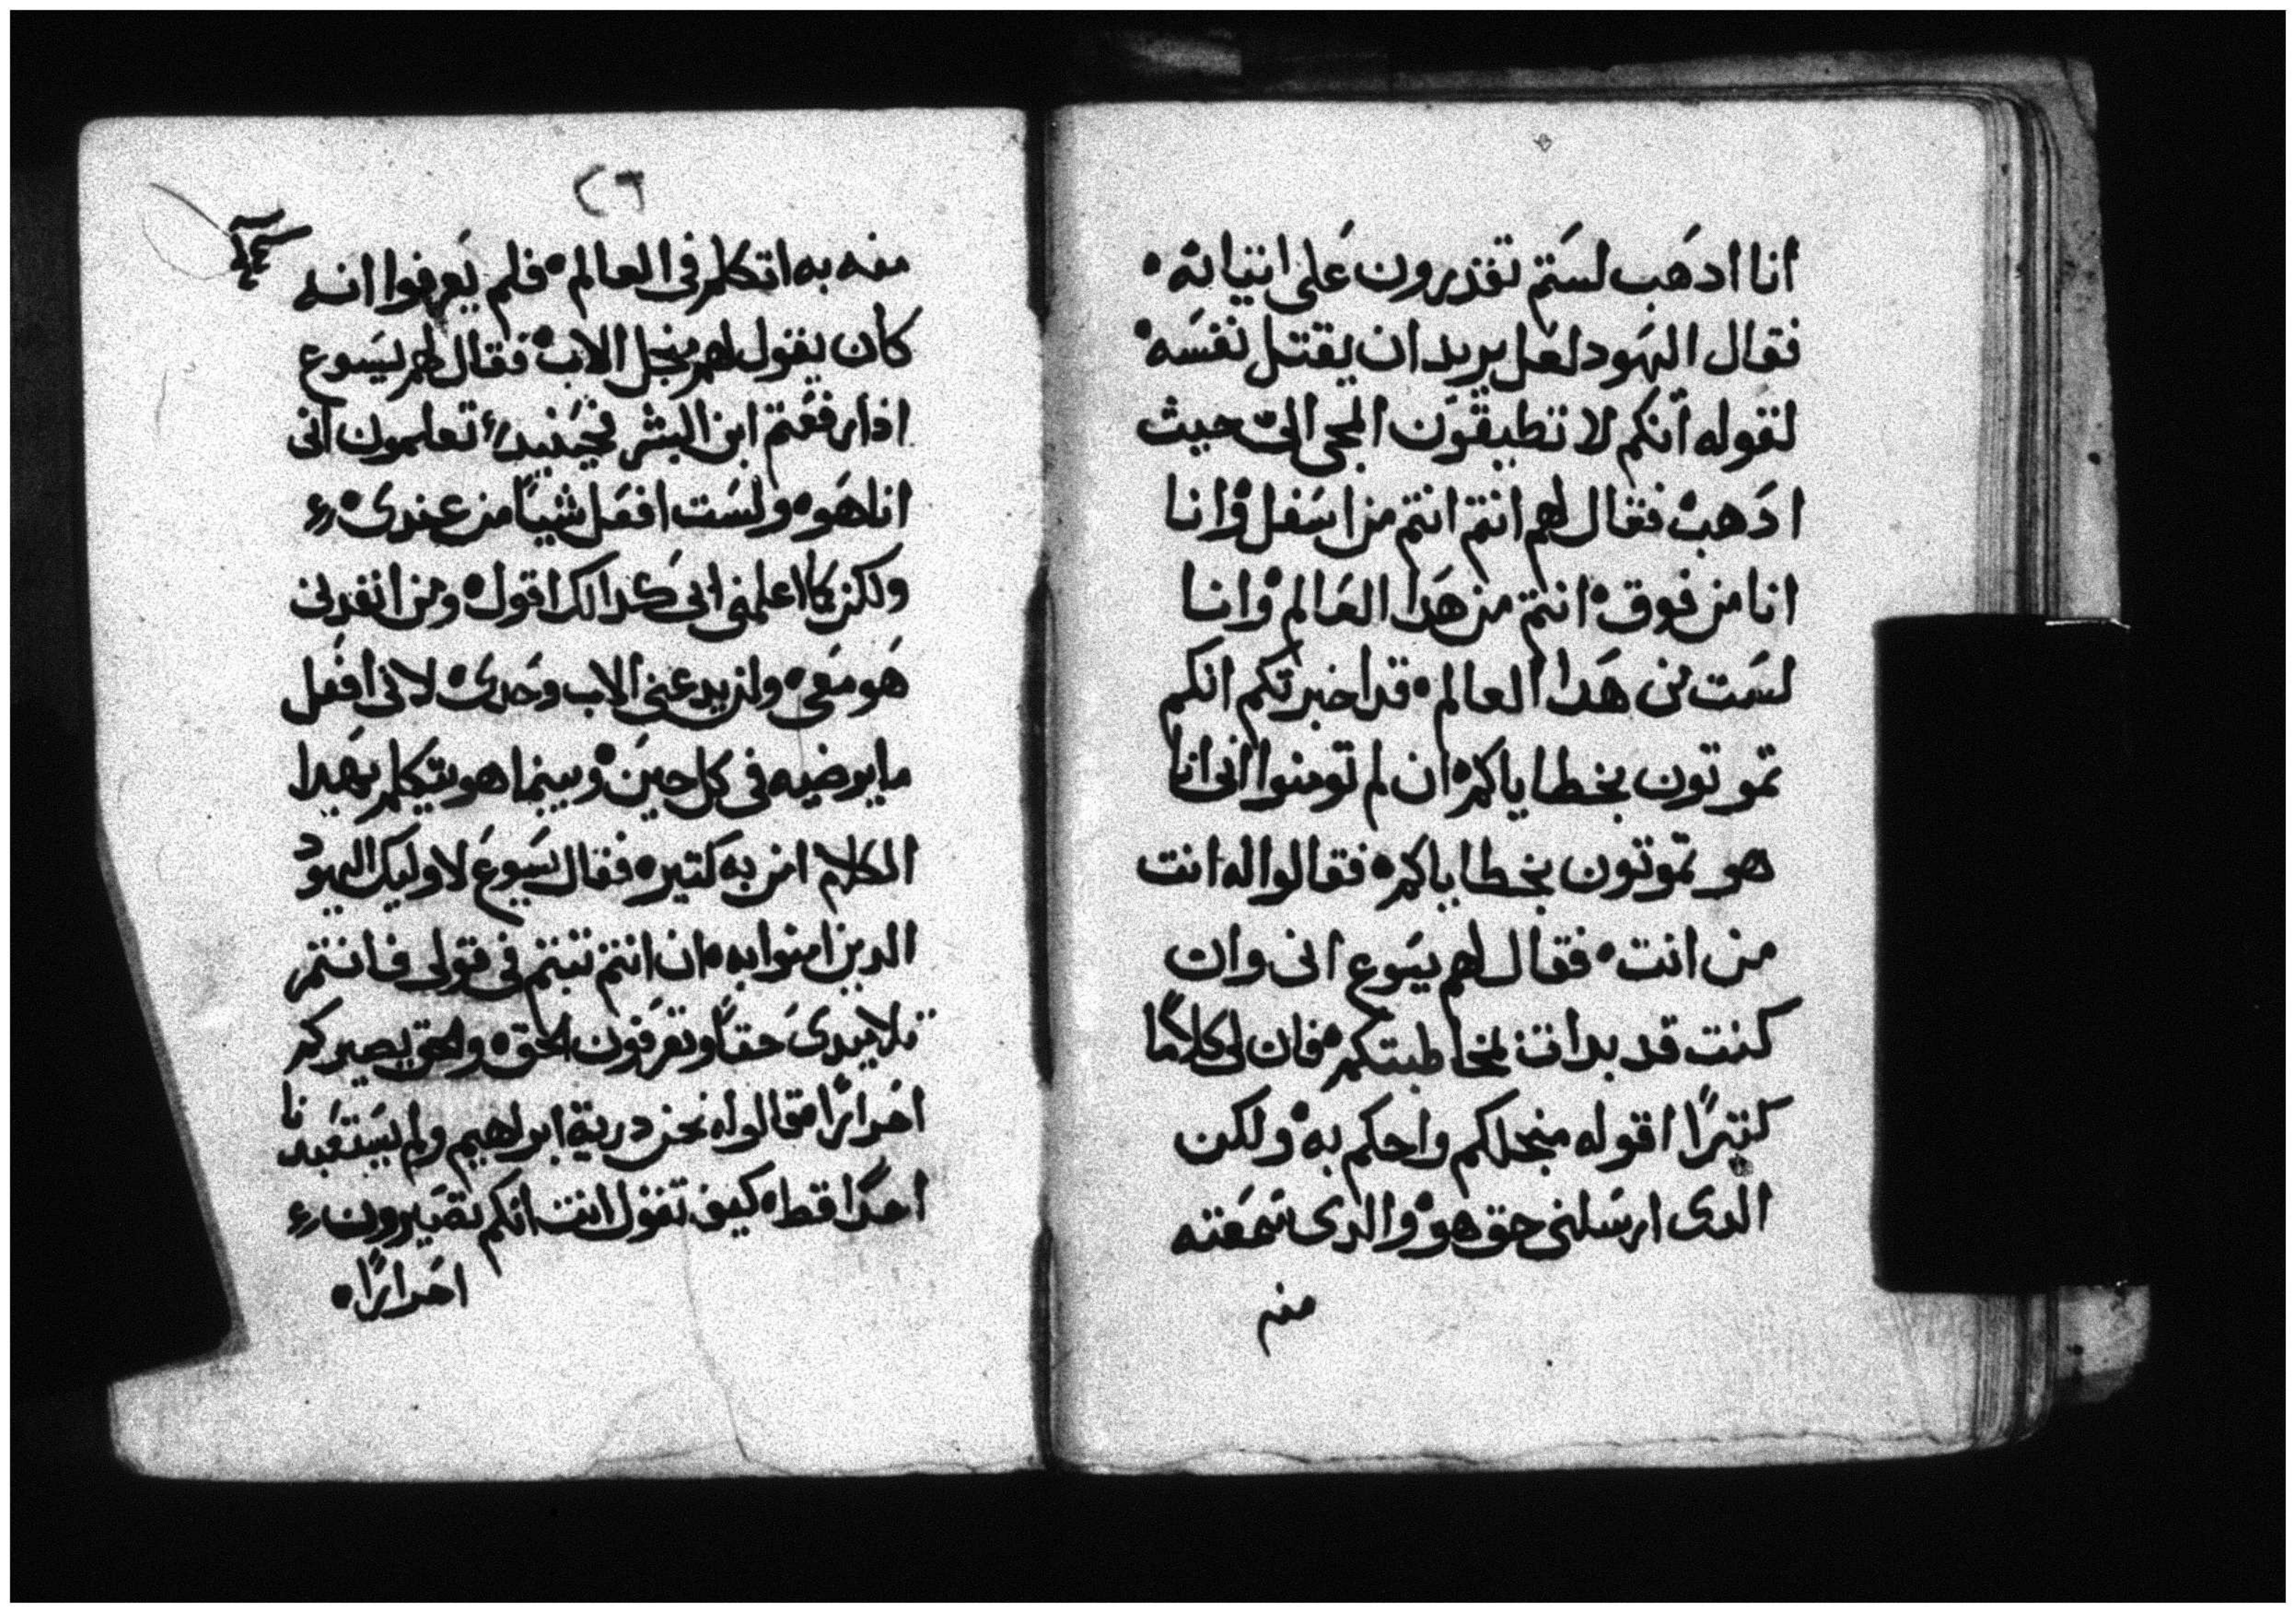 انا ادهب لستم تقدرون على اتيانه
فقال اليهود لعل يريد ان يقتل نفسه
لقوله أنكم لا تطيقون المجى الى حيث
ادهب فقال لهم انتم انتم من اسفل وانا
انا من فوق انتم من هدا العالم وانا
لست من هدا العالم قد اخبرتكم انكم
تموتون بخطاياكم ان لم تومنوا انى انا
هو تموتون بخطاياكم فقالوا له انت
من انت فقال لهم يسوع انى وان
كنت قد بدات بمخاطبتكم فان لى كلامًا
كتيرًا اقوله منجلكم واحكم به ولكن
الدى ارسلنى حق هو والدى سمعته
منه
٢٦
منه به اتكلم فى العالم فلم يعرفوا انه
كان يقول لهم منجل الاب فقال لهم يسوع
ادا رفعتم ابن البشر فحينيد تعلمون انى
انا هو ولست افعل شيًا من عندى
ولكن كما اعلمنى ابى كدالك اقول ومن انفدنى
هو معى ولن يدعنى الاب وحدى لانى افعل
ما يرضيه فى كل حين وبينما هو يتكلم بهدا
الكلام امن به كتير فقال يسوع لاوليك اليهود
الدين امنوا به ان انتم تبتم فى قولى فانتم
تلاميدى حقًا وتعرفون الحق والحق يصيركم
احرارًا فقالوا له نحن درية ابراهيم ولم يستعبدنا
احدًا قط كيف تقول انت انكم تصيرون
احرارًا